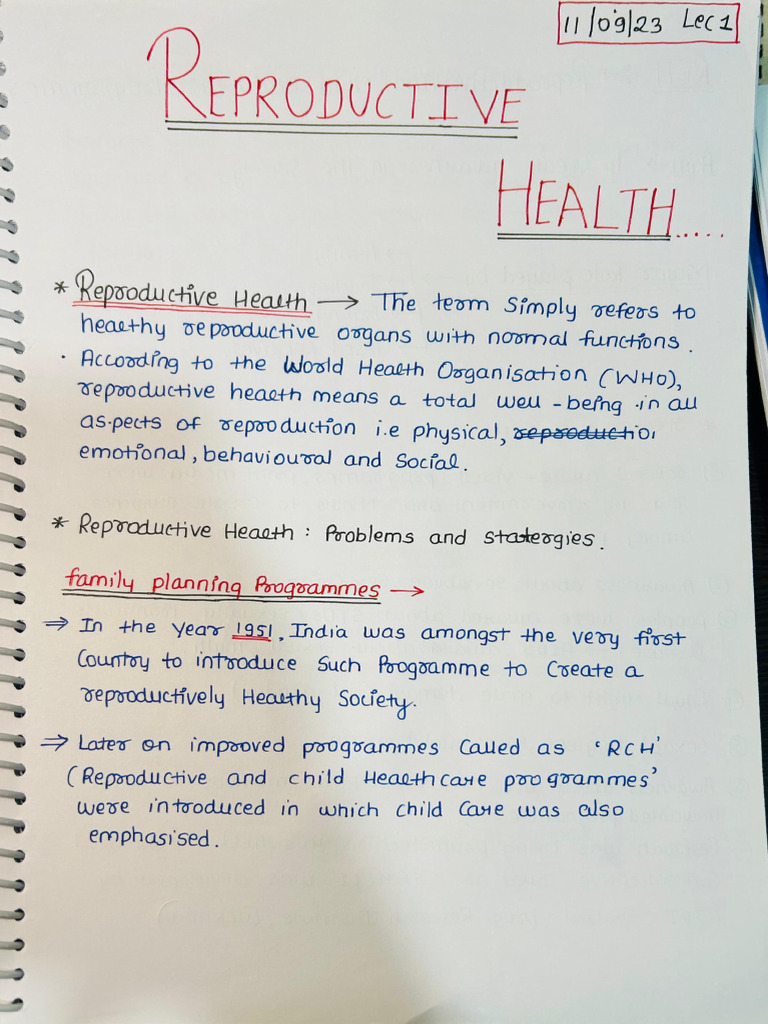 11/09/23 Lec 1
REPRODUCTIVE
HEALTH.....
* Reproductive Health → The term Simply refers to
healthy reproductive organs with normal functions.
· According to the World Health Organisation (WHO),
reproductive health means a total well-being in all
aspects of reproduction i.e physical, reproductio
emotional, behavioural and Social.
* Reproductive Health : Problems and statergies.
family planning Programmes →
⇒ In the Year 1951, India was amongst the very first
Country to introduce Such Programme to Create a
reproductively Healthy Society.
⇒ Later on improved programmes Called as 'RCH'
(Reproductive and child Healthcare programmes'
were introduced in which child Care was also
emphasised.